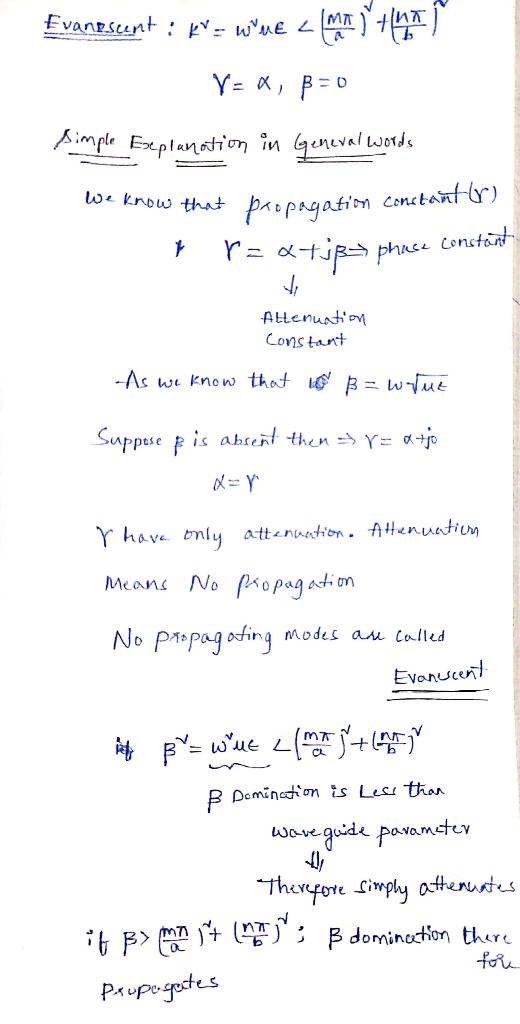 Evanescent : k² = ω²με < (mπ/a)² + (nπ/b)²
γ = α, β = 0
Simple Explanation in General words
We know that propagation constant (γ)
γ = α + jβ ⇒ phase constant
↓
Attenuation
Constant
-As we know that β = ω√με
Suppose β is absent then ⇒ γ = α + j0
α = γ
γ have only attenuation. Attenuation
Means No Propagation
No propagating modes are called
Evanescent
if β² = ω²με < (mπ/a)² + (nπ/b)²
β Domination is Less than
waveguide parameter
⇓
Therefore Simply attenuates
if β > (mπ/a)² + (nπ/b)² ; β domination there
fore
Propagates